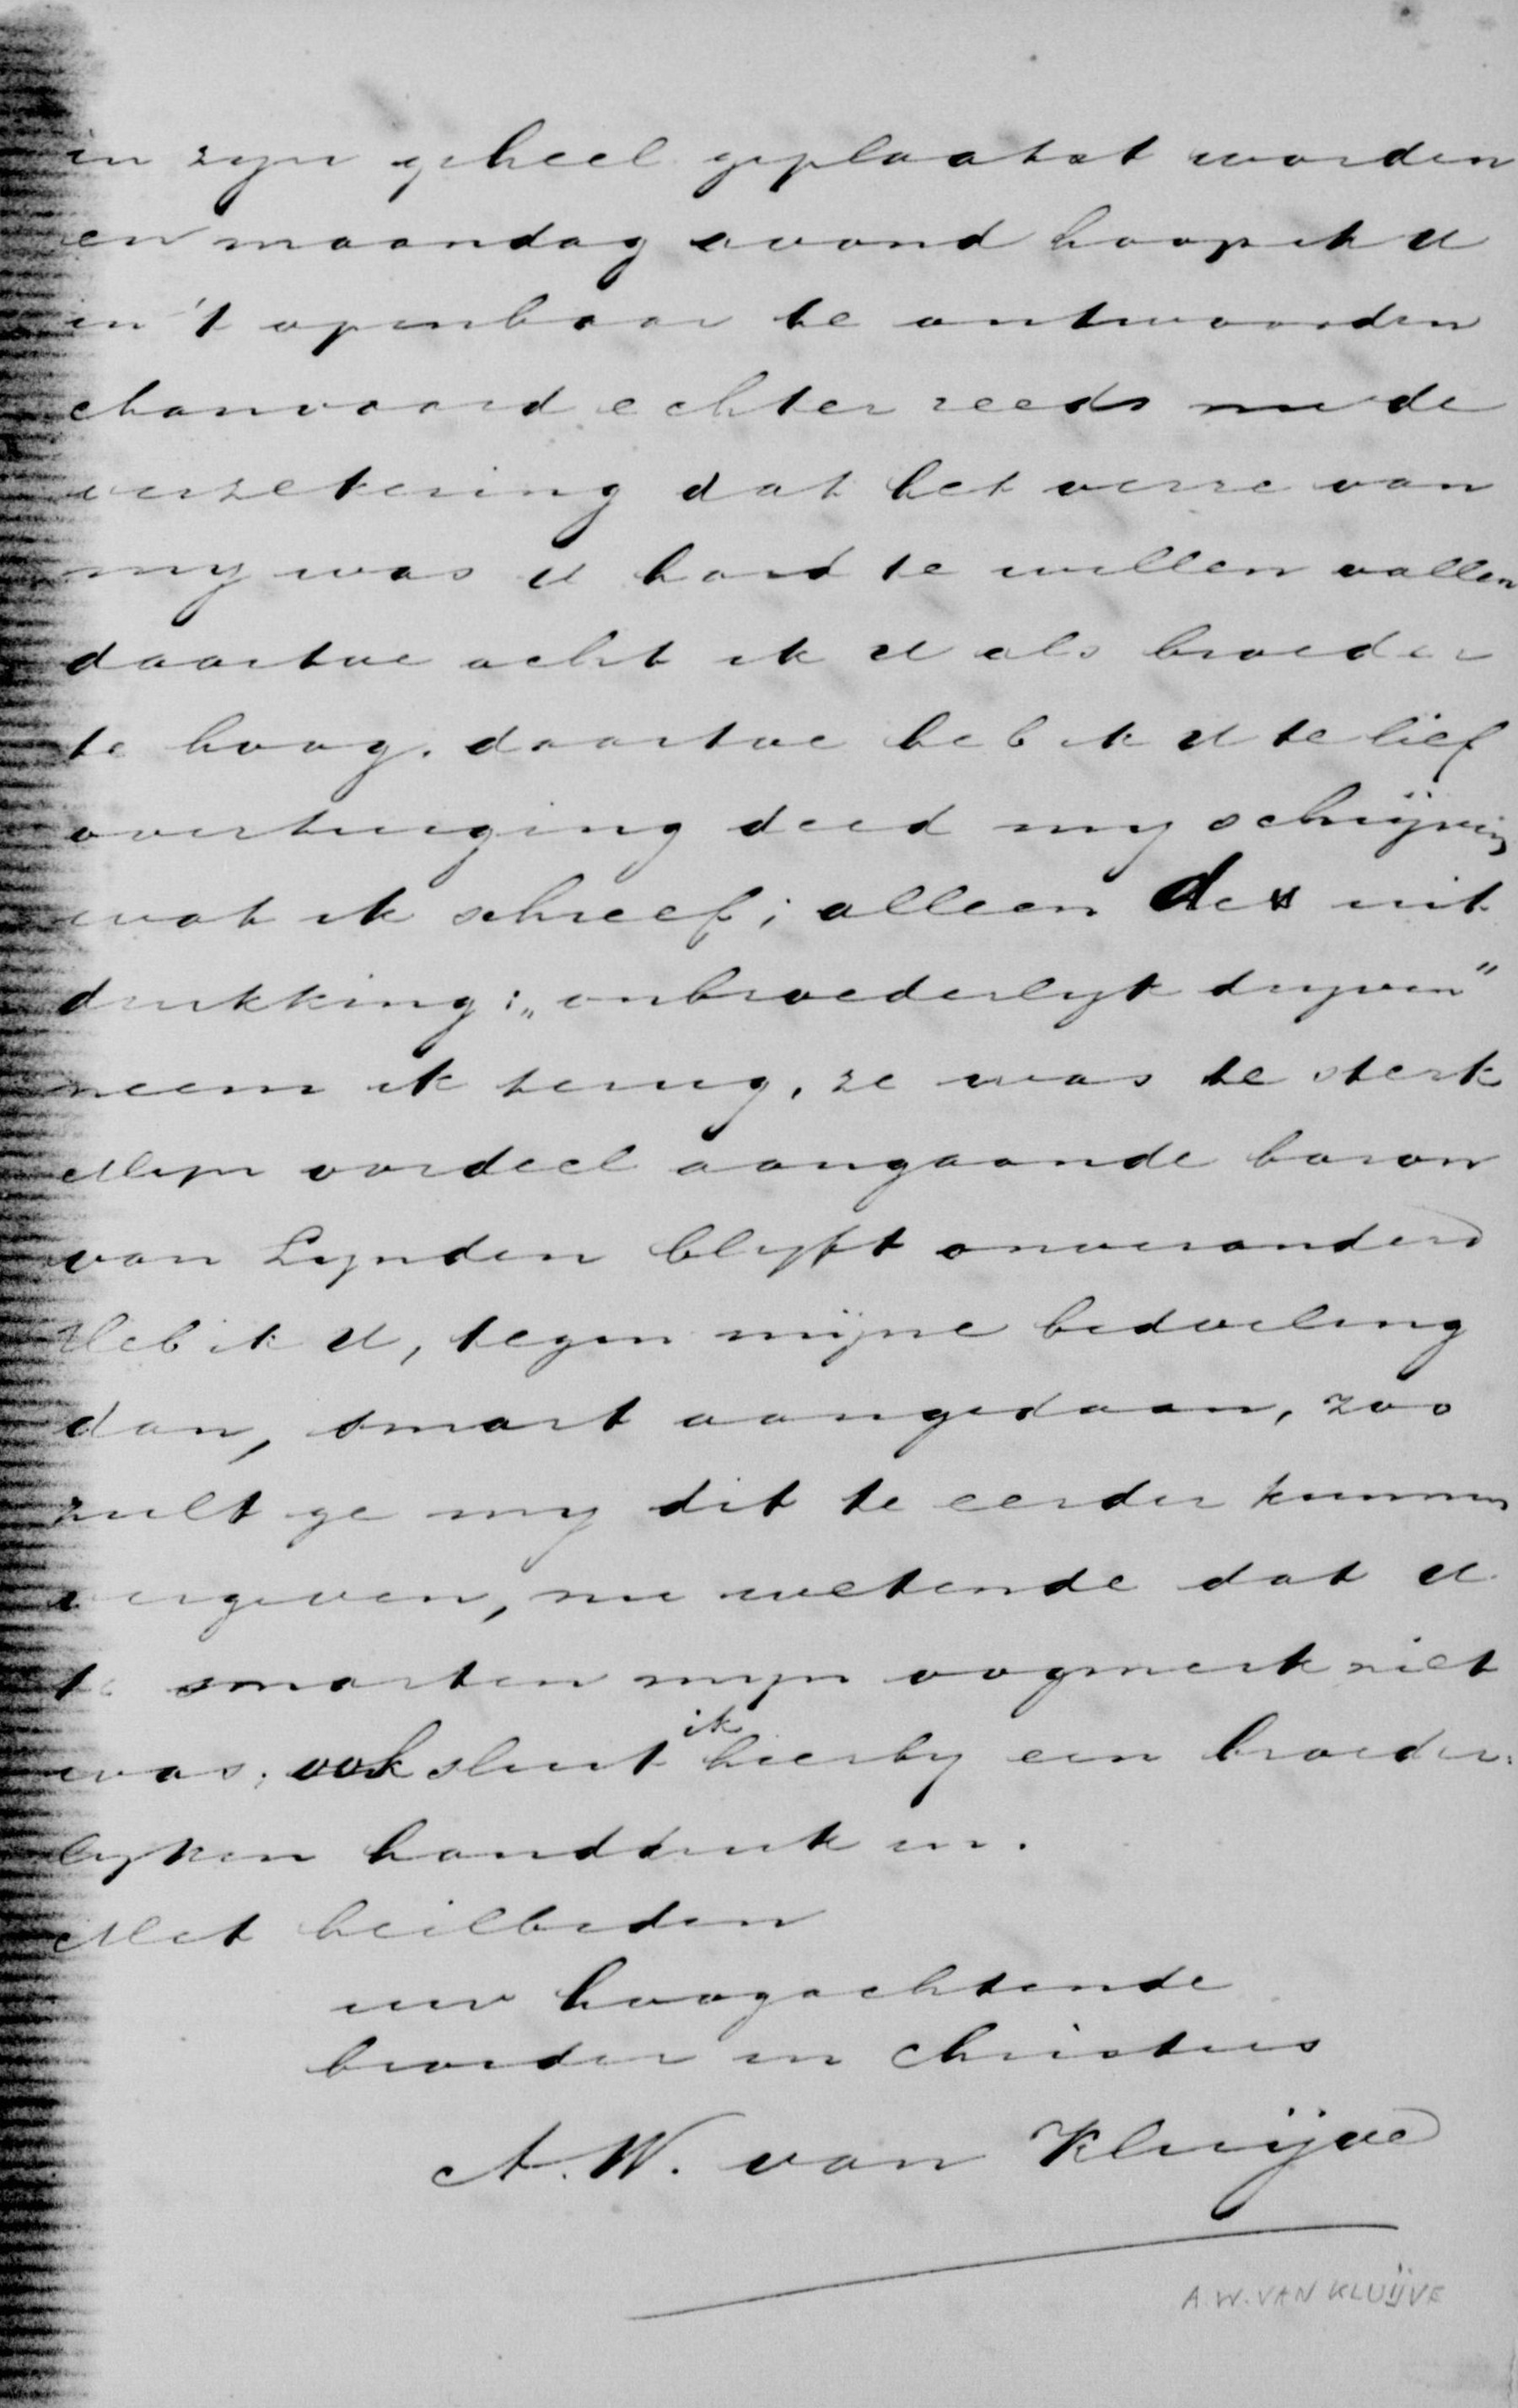 in zyn geheel geplaatst worden
en maandag avond hoop ik U
in 't openbaar te antwoorden
Aanvaard echter reeds nu de
verzekering dat het verre van
my was U hard te willen vallen
daartoe acht ik U als broeder
te hoog. daartoe heb ik U te lief
overtuiging deed my schrijven
wat ik schreef; alleen de uit
drukking: „onbroederlyk dryven"
neem ik terug, ze was te sterk
Myn oordeel aangaande baron
van Lynden blyft onveranderd
Heb ik U, tegen mijne bedoeling
dan, smart aangedaan, zoo
zult ge my dit te eerder kunnen
vergeven, nu wetende dat U
te smarten myn oogmerk niet
was; ook sluit ik hierby een broeder-
lyken handdruk in.
Met heilbeden
uw hoogachtende
broeder in Christus
A. W. van Kluijve
A.W. VAN KLUIJVE